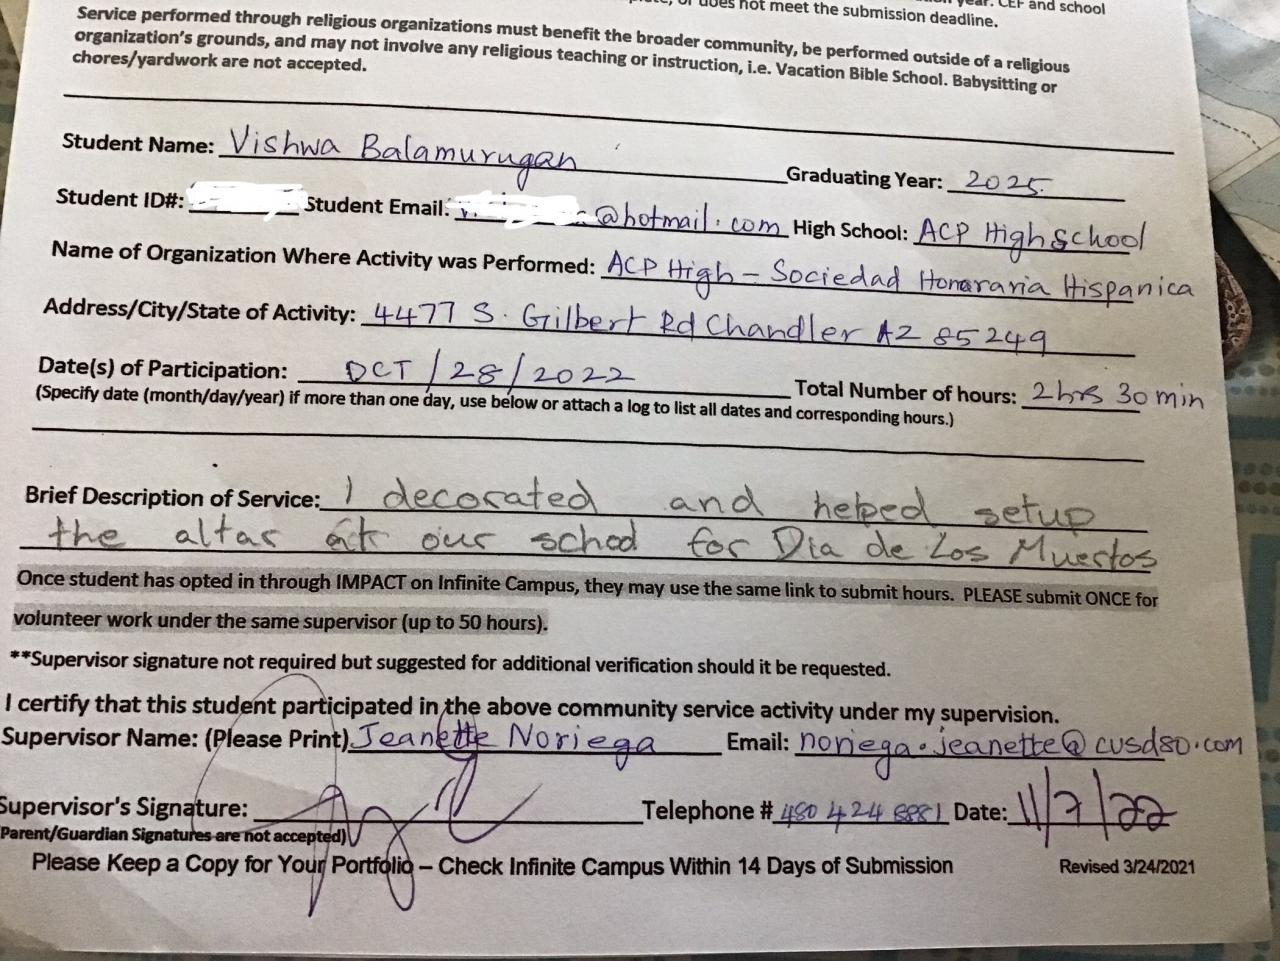 year. CEF and school
or does not meet the submission deadline.
Service performed through religious organizations must benefit the broader community, be performed outside of a religious
organization's grounds, and may not involve any religious teaching or instruction, i.e. Vacation Bible School. Babysitting or
chores/yardwork are not accepted.
Student Name: Vishwa Balamurugan Graduating Year: 2025
Student ID#: Student Email: @hotmail.com High School: ACP High School
Name of Organization Where Activity was Performed: ACP High - Sociedad Honoraria Hispanica
Address/City/State of Activity: 4477 S. Gilbert Rd Chandler AZ 85249
Date(s) of Participation: OCT/28/2022 Total Number of hours: 2 hrs 30 min
(Specify date (month/day/year) if more than one day, use below or attach a log to list all dates and corresponding hours.)
Brief Description of Service: I decorated and helped setup
the altar at our school for Dia de Los Muertos
Once student has opted in through IMPACT on Infinite Campus, they may use the same link to submit hours. PLEASE submit ONCE for
volunteer work under the same supervisor (up to 50 hours).
**Supervisor signature not required but suggested for additional verification should it be requested.
I certify that this student participated in the above community service activity under my supervision.
Supervisor Name: (Please Print) Jeanette Noriega Email: noriega.jeanette@cusd80.com
Supervisor's Signature: Telephone # 480 424 8881 Date: 11/7/22
Parent/Guardian Signatures are not accepted)
Please Keep a Copy for Your Portfolio – Check Infinite Campus Within 14 Days of Submission Revised 3/24/2021